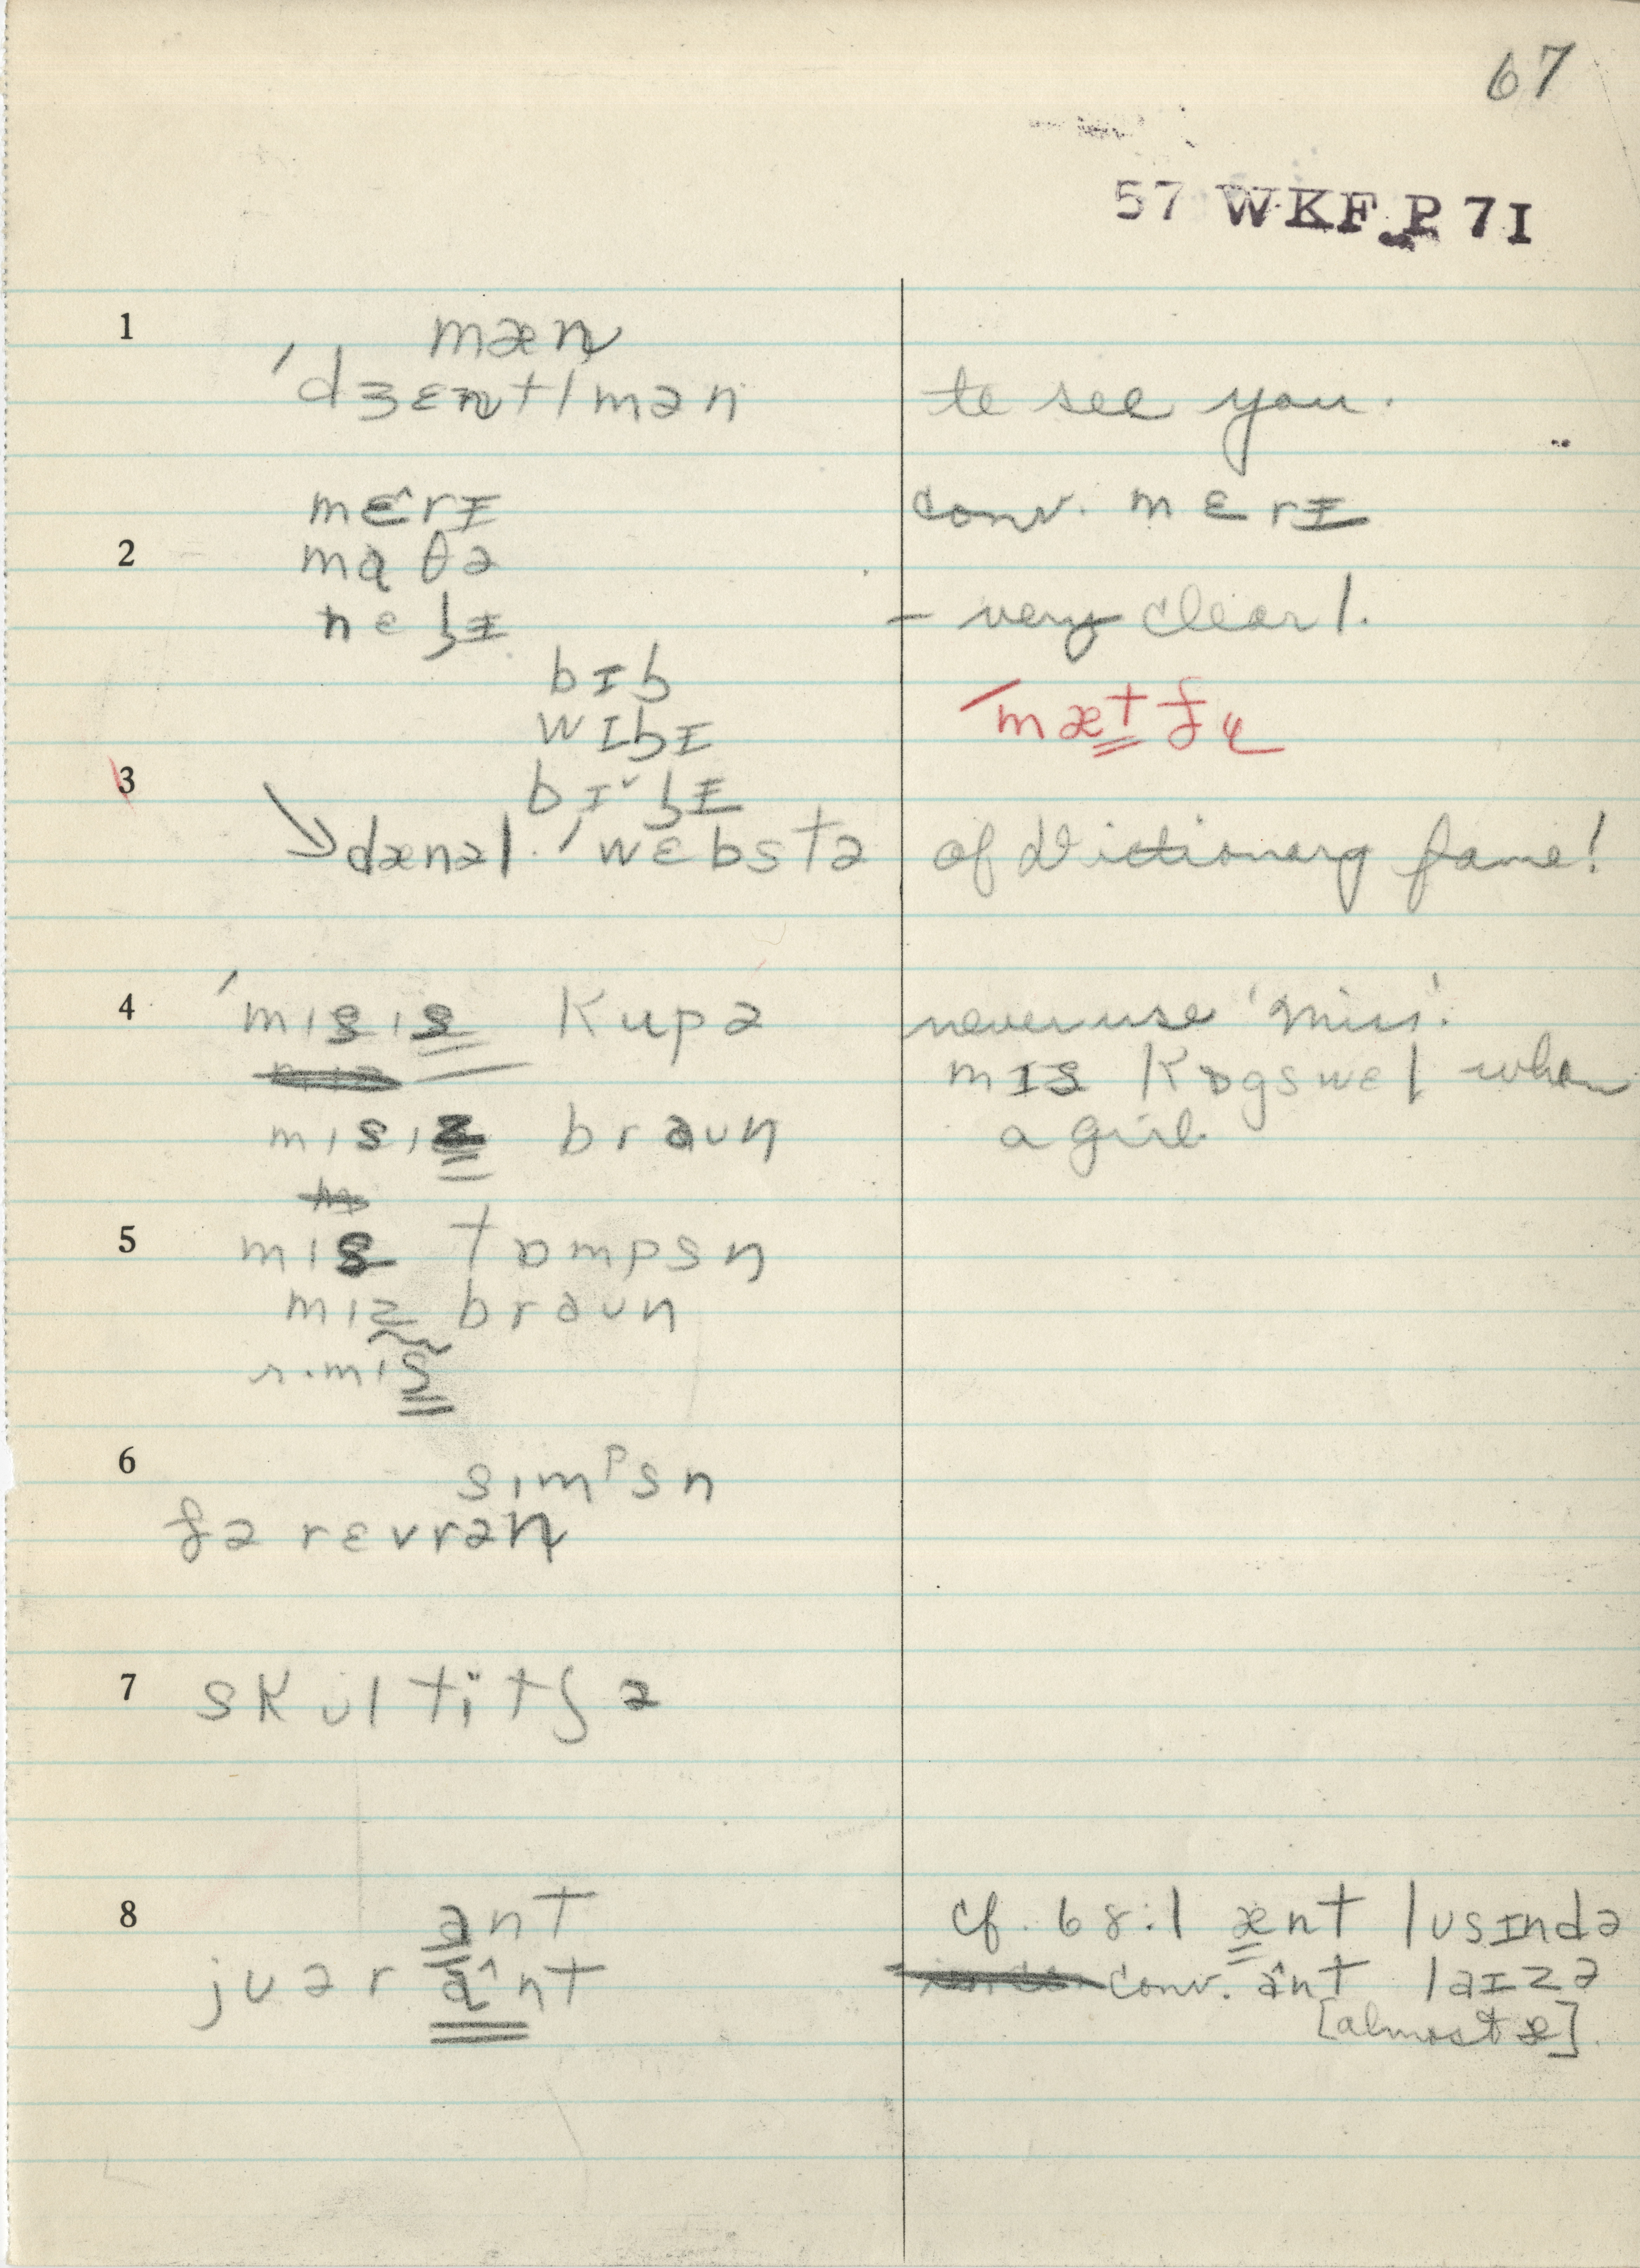 67
57 WKF P 71
1 mæn
ˈdʒɛntlmən to see you.
mɛ˄rɪ conv. mɛrɪ
2 mɑθə
nɛlɪ - very clear l.
bɪl
wɪlɪ ˈmætfɥ
bɪ˅lɪ
3 dænəl. ˈwɛbstə of Dictionary fame!
4 ˈmɪsɪs kupə never use 'Miss'.
mɪs kɒgswɛl when
mɪsɪz braun a girl
5 mɪs tɒmpsn
mɪz braun
r.mɪs
6 sɪmᵖsn
fə rɛvrən
7 skultitʃə
8 ant cf. 68:1 ænt lusɪndə
juər a˄nt conv. a˄nt laɪzə
[almost æ].